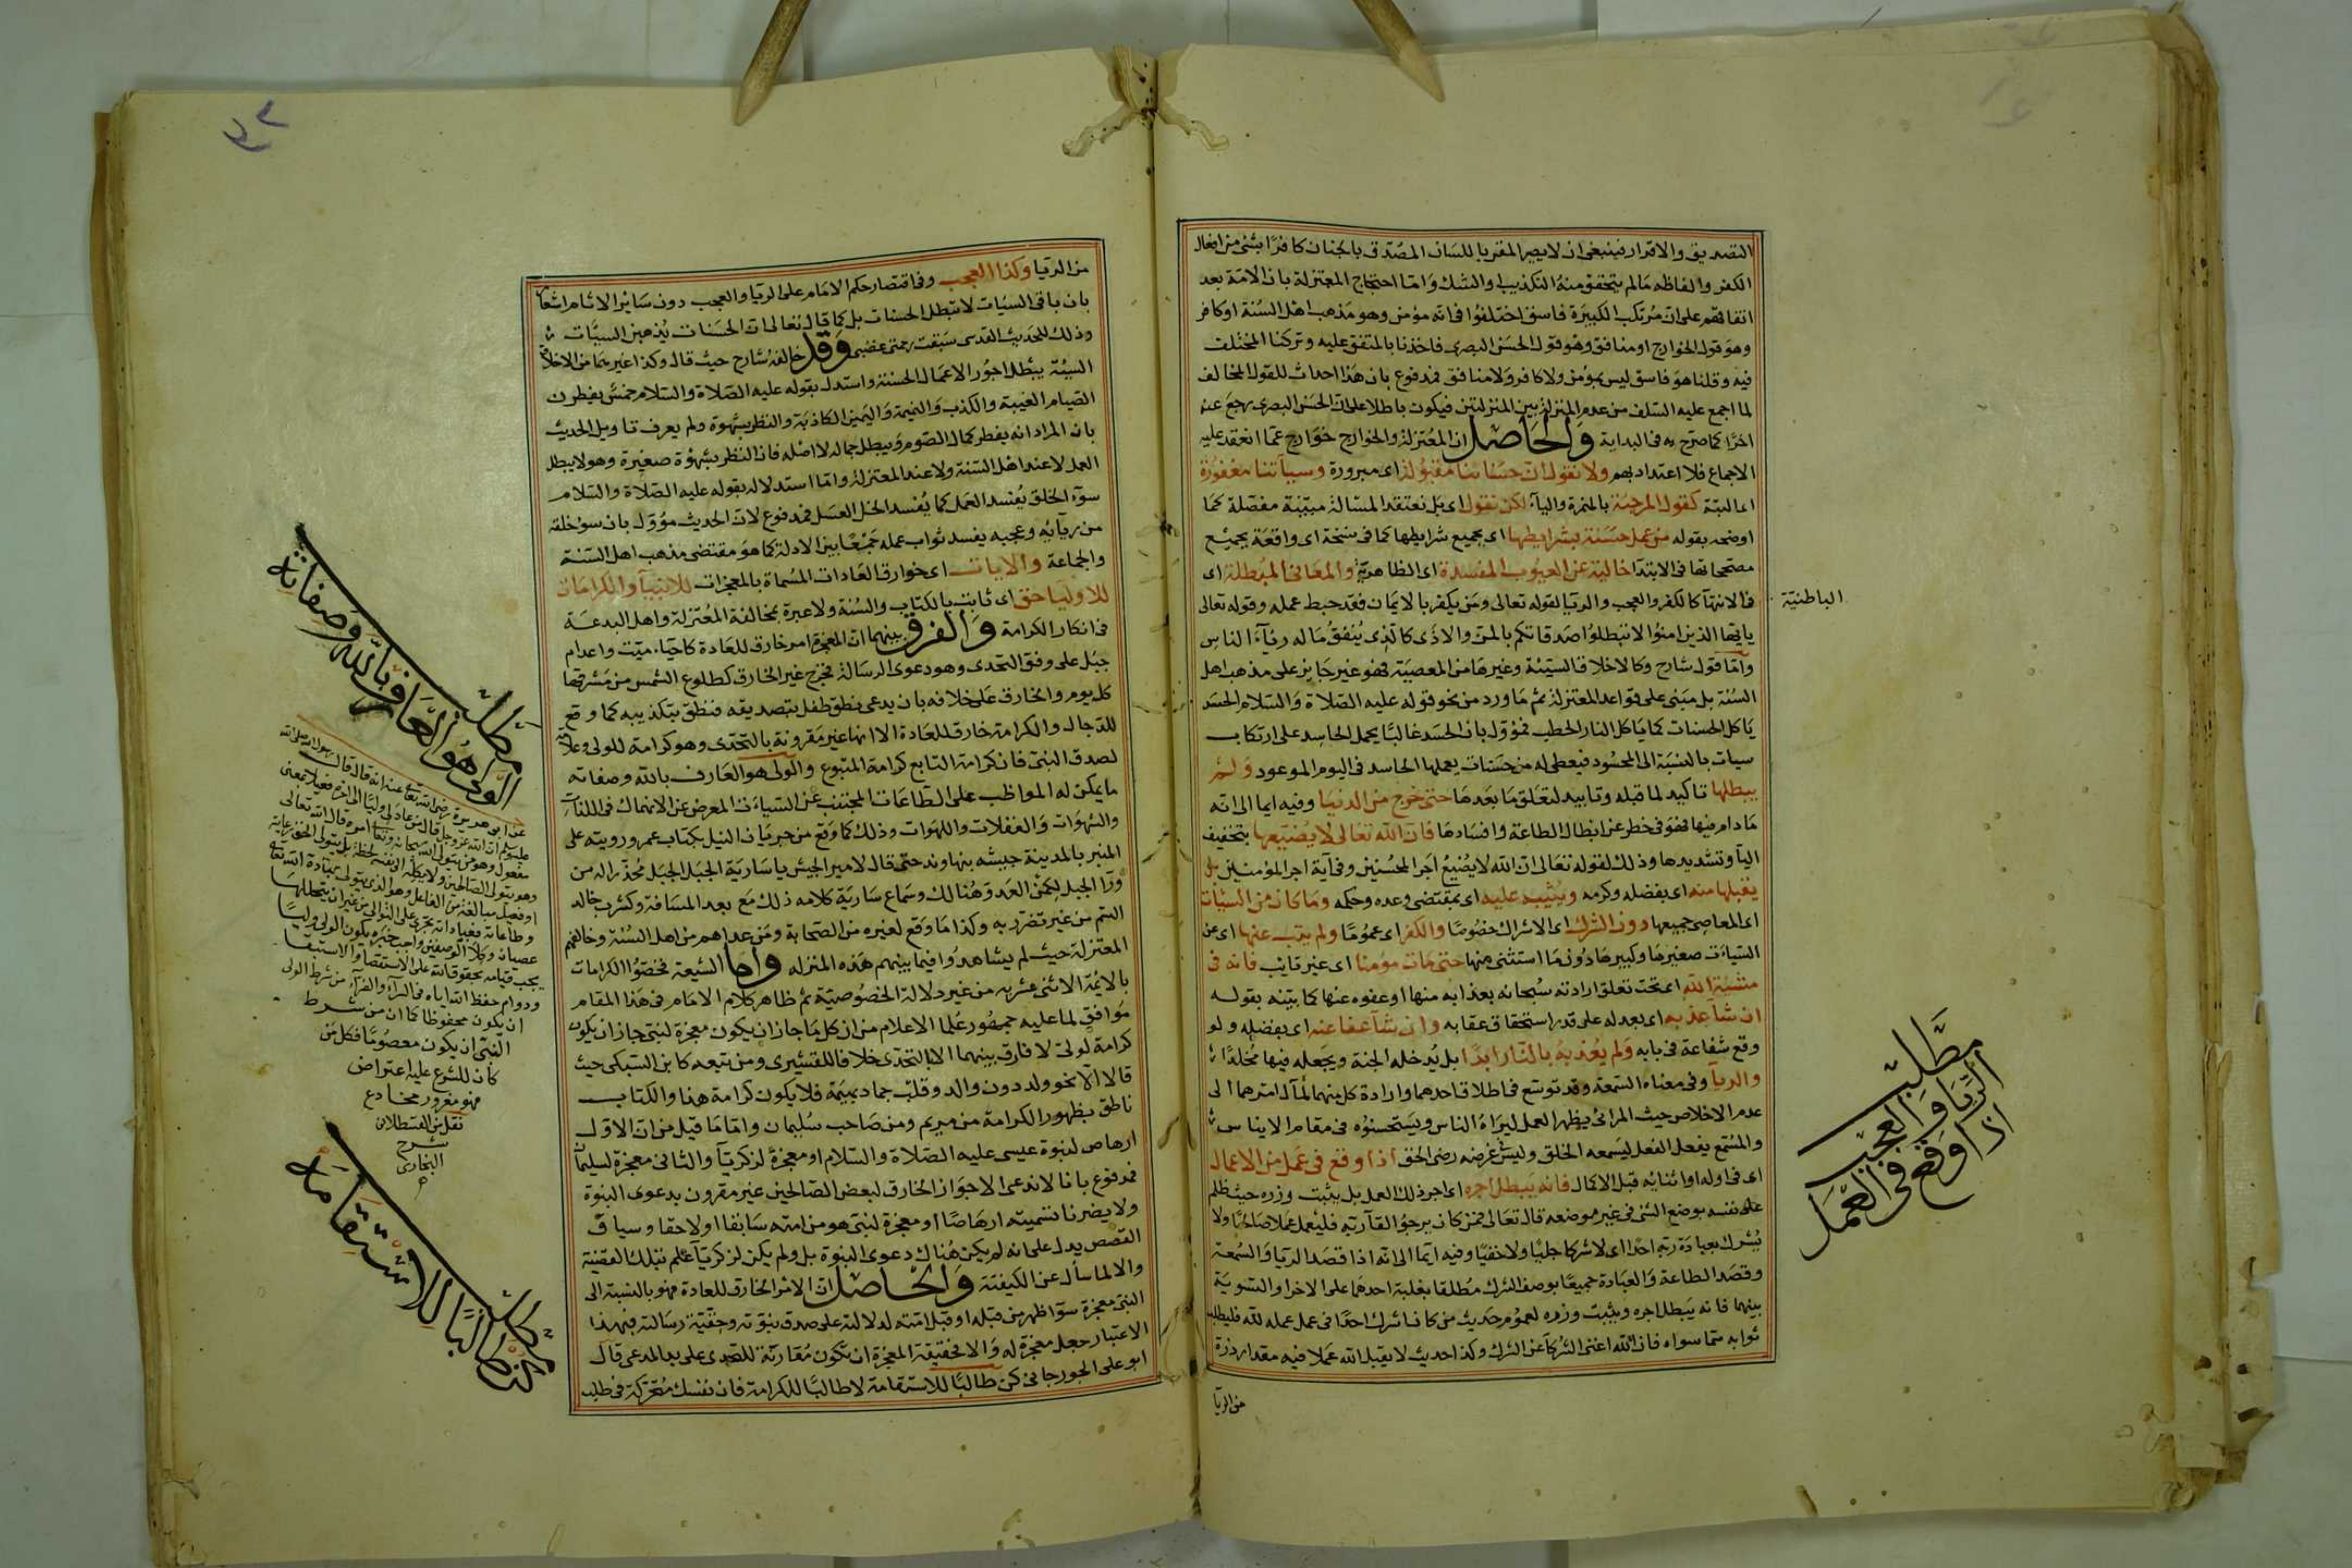 التصديق والاقرار فينبغى ان لا يصير المقر باللسان المصدق بالجنان كافرا بشئ من افعال
الكفر والفاظه مالم يتحقق منه التكذيب والشك واما احتجاج المعتزلة بان الامة بعد
اتفاقهم على ان مرتكب الكبيرة فاسق اختلفوا فى انه مؤمن وهو مذهب اهل السنة او كافر
وهو قول الخوارج او منافق وهو قول الحسن البصرى فاخذنا بالمتفق عليه وتركنا المختلف
فيه وقلنا هو فاسق ليس بمؤمن ولا كافر ولا منافق فمدفوع بان هذا احداث للقول المخالف
لما اجمع عليه السلف من عدم المنزلة بين المنزلتين فيكون باطلا على ان الحسن البصرى رجع عنه
اخرا كما صرح به فى البداية والحاصل ان المعتزلة والخوارج خوارج عما انعقد عليه
الاجماع فلا اعتداد بهم ولا نقول ان حسناتنا مقبولة اى مبرورة وسيآتنا مغفورة
اى البتة كقول المرجئة بالهمزة والياء لكن نقول اى بل نعتقد المسالة مبينة مفصلة كما
اوضحه بقوله من عمل حسنة بشرايطها اى بجميع شرايطها كما فى نسخة اى واقعة بجميع
مصححاتها فى الابتدا خالية عن العيوب المفسدة اى الظاهرية والمعانى المبطلة اى
الباطنية
فى الانتهآ كالكفر والعجب والريا لقوله تعالى ومن يكفر بالايمان فقد حبط عمله وقوله تعالى
يايها الذين امنوا لا تبطلوا صدقاتكم بالمن والاذى كالذى ينفق ماله رئآء الناس
واما قول شارح وكالاخلاق السيئة وغيرها من المعصية فهو غير جايز على مذهب اهل
السنة بل مبنى على قواعد المعتزلة ثم ما ورد من نحو قوله عليه الصلاة والسلام الحسد
ياكل الحسنات كما ياكل النار الحطب فمؤول بان الحسد غالبا يحمل الحاسد على ارتكاب
سيات بالنسبة الى المحسود فيعطى له من حسنات يعملها الحاسد فى اليوم الموعود ولم
يبطلها تاكيد لما قبله وتاييد لتعلق ما بعدها حتى خرج من الدنيا وفيه ايما الى انه
ما دام فيها فهو فى خطر عن ابطال الطاعة وافسادها فان الله تعالى لا يضيعها بتخفيف
اليآ وتشديدها وذلك لقوله تعالى ان الله لا يضيع اجر المحسنين وفى آية اجر المؤمنين بل
يقبلها منه اى بفضله وكرمه ويثيبه عليه اى بمقتضى وعده وحكمه وما كان من السيئات
اى المعاصى جميعها دون الشرك اى الاشراك خصوصا والكفر اى عموما ولم يتب عنها اى عن
السيئات صغيرها وكبيرها دون ما استثنى منها حتى مات مؤمنا اى غير تايب فانه فى
مشيئة الله اى تحت تعلق ارادته سبحانه بعذابه منها او عفوه عنها كما بينه بقوله
ان شا عذبه اى بعدله على قدر استحقاق عقابه وان شآ عفا عنه اى بفضله ولو
وقع شفاعة فى بابه ولم يعذبه بالنار ابدا بل يدخله الجنة ويجعله فيها مخلدا
والريآ وفى معناه السمعة وقد توسع فى اطلاق احدهما وارادة كل منهما لمآل امرهما الى
عدم الاخلاص حيث المرائى يظهر العمل ليراءه الناس ويستحسنوه فى مقام الايناس
والمسمع يفعل الفعل ليسمعه الخلق وليس غرضه رضى الحق اذا وقع فى عمل من الاعمال
اى فى اوله او اثنائه قبل الاكمال فانه يبطل اجره اى اجر ذلك العمل بل يثبت وزره حيث ظلم
على نفسه بوضع الشئ فى غير موضعه قال تعالى فمن كان يرجو القآ ربه فليعمل عملا صالحا ولا
يشرك بعبادة ربه احدا اى لا شركا جليا ولا خفيا وفيه ايما الى انه اذا قصد الريا والسمعة
وقصد الطاعة والعبادة جميعا بوصف الشرك مطلقا بغلبة احدهما على الاخر او التسوية
بينهما فانه يبطل اجره ويثبت وزره لعموم حديث من كان اشرك احدا فى عمل عمله لله فليطلب
ثوابه مما سواه فان الله اغنى الشركآ عن الشرك وكذا حديث لا يقبل الله عملا فيه مقدار ذرة
من الريآ
مطلب
الريا والعجب
اذا وقع فى العمل
من الريا وكذا العجب وفى اقتصار حكم الامام على الريا والعجب دون ساير الاثام اشعار
بان باقى السيات لا تبطل الحسنات بل كما قال تعالى ان الحسنات يذهبن السيئات
وذلك للحديث القدسى سبقت رحمتى غضبى وقد خالفه شارح حيث قال وكذا غيرهما من الاخلاق
السيئة يبطل اجور الاعمال الحسنة واستدل بقوله عليه الصلاة والسلام خمس يفطرن
الصيام الغيبة والكذب والنميمة واليمين الكاذبة والنظر بشهوة ولم يعرف تاويل الحديث
بان المراد انه يفطر كمال الصوم ويبطل جماله لا اصله فان النظر بشهوة صغيرة وهو لا يبطل
العمل لا عند اهل السنة ولا عند المعتزلة واما استدلاله بقوله عليه الصلاة والسلام
سوء الخلق يفسد العمل كما يفسد الخل العسل فمدفوع لان الحديث مؤول بان سوء خلقه
من ريآئه وعجبه يفسد ثواب عمله جمعا بين الادلة كما هو مقتضى مذهب اهل السنة
والجماعة والايات اى خوارق العادات المسماة بالمعجزات للانبيآ والكرامات
للاوليا حق اى ثابت بالكتاب والسنة ولا عبرة بمخالفة المعتزلة واهل البدعة
فى انكار الكرامة والفرق بينهما ان المعجزة امر خارق للعادة كاحيآء ميت واعدام
جبل على وفق التحدى وهو دعوى الرسالة فخرج غير الخارق كطلوع الشمس من مشرقها
كل يوم والخارق على خلافه بان يدعى نطق طفل بتصديقه فنطق بتكذيبه كما وقع
للدجال والكرامة خارق للعادة الا انها غير مقرونة بالتحدى وهو كرامة للولى وعلامة
لصدق النبى فان كرامة التابع كرامة المتبوع والولى هو العارف بالله وصفاته
ما يمكن له المواظب على الطاعات المجتنب عن السيئات المعرض عن الانهماك فى اللذات
والشهوات والغفلات واللهوات وذلك كما وقع من جريان النيل بكتاب عمر ورويته على
المنبر بالمدينة جيشه بنهاوند حتى قال لامير الجيش يا سارية الجبل الجبل محذرا له من
ورآ الجبل لكمن العدو هنالك وسماع سارية كلامه ذلك مع بعد المسافة وكشرب خالد
السم من غير تضرر به وكذا ما وقع لغيره من الصحابة ومن عداهم من اهل السنة وخالفهم
المعتزلة حيث لم يشاهدوا فيما بينهم هذه المنزلة واما الشيعة فخصوا الكرامات
بالايمة الاثنى عشرية من غير دلالة الخصوصية ثم ظاهر كلام الامام فى هذا المقام
موافق لما عليه جمهور علما الاعلام من ان كل ما جاز ان يكون معجزة لنبى جاز ان يكون
كرامة لولى لا فارق بينهما الا التحدى خلافا للقشيرى ومن تبعه كابن السبكى حيث
قالا الا نحو ولد دون والد وقلب جماد بهيمة فلا يكون كرامة هنا والكتاب
ناطق بظهور الكرامة من مريم ومن صاحب سليمان واما ما قيل من ان الاول
ارهاص لنبوة عيسى عليه الصلاة والسلام او معجزة لزكريآ والثانى معجزة لسليمان
فمدفوع بانا لا ندعى الا جواز الخارق لبعض الصالحين غير مقرون بدعوى النبوة
ولا يضرنا تسميته ارهاصا او معجزة لنبى هو من امته سابقا او لاحقا وسياق
القصص يدل على انه لم يكن هناك دعوى النبوة بل ولم يكن لزكريآ علم بتلك القضية
والا لما سأل عن الكيفية والحاصل ان الامر الخارق للعادة فهو بالنسبة الى
النبى معجزة سوآ ظهر من قبله او قبل امته لدلالته على صدق نبوته وحقية رسالته فبهذا
الاعتبار جعل معجزة له والا فحقيقة المعجزة ان تكون مقارنة للتحدى على يد المدعى قال
ابو على الجورجانى كن طالبا للاستقامة لا طالبا للكرامة فان نفسك متحركة فى طلب
مطلب
الولى هو العارف بالله وصفاته
عن ابى هريرة رضى الله تعا عنه انه قال قال رسول الله صلى الله
عليه وسلم ان الله عز وجل قال من عادى لى وليا الى اخره فعيل بمعنى
مفعول وهو من يتولى الله سبحانه وتعا امره قال الله تعالى
وهو يتولى الصالحين ولا يكله الى نفسه لحظة بل يتولى الحق رعايته
او فعيل مبالغة من الفاعل وهو الذى يتولى عبادة الله تعا
وطاعاته فعباداته تجرى على التوالى من غير ان يتخللها
عصيان وكلا الوصفين واجب حتى يكون الولى وليا
يجب قيامه بحقوق الله على الاستقصا والاستيفا
ودوام حفظ الله اياه فى السرآء والضرآء من شرط الولى
ان يكون محفوظا كما ان من شرط
النبى ان يكون معصوما فكل من
كان للشرع عليه اعتراض
فهو مغرور مخادع
نقل من القسطلانى
شرح
البخارى
مطلب
كن طالبا للاستقامة